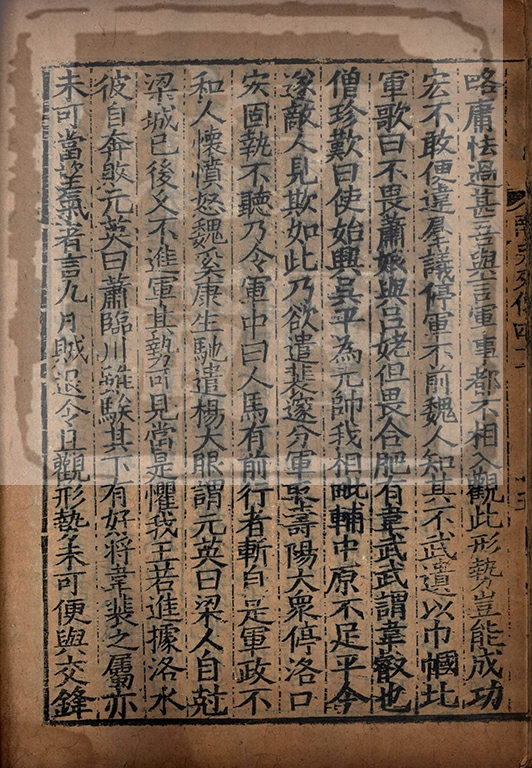 略庸怯過甚吾與言軍事都不相入觀此形勢豈能成功
宏不敢便違羣議停軍不前魏人知其不武遺以巾幗北
軍歌曰不畏蕭娘與呂姥但畏合肥有韋武武謂韋叡也
僧珍歎曰使始興吳平為元帥我相毗輔中原不足平今
遂敵人見欺如此乃欲遣裴邃分軍取壽陽大衆停洛口
宏固執不聽乃令軍中曰人馬有前行者斬自是軍政不
和人懷憤怒魏奚康生馳遣楊大眼謂元英曰梁人自尅
梁城已後久不進軍其勢可見當是懼我王若進據洛水
彼自奔敗元英曰蕭臨川雖騃其下有好將韋裴之屬亦
未可當望氣者言九月賊退今且觀形勢未可便與交鋒